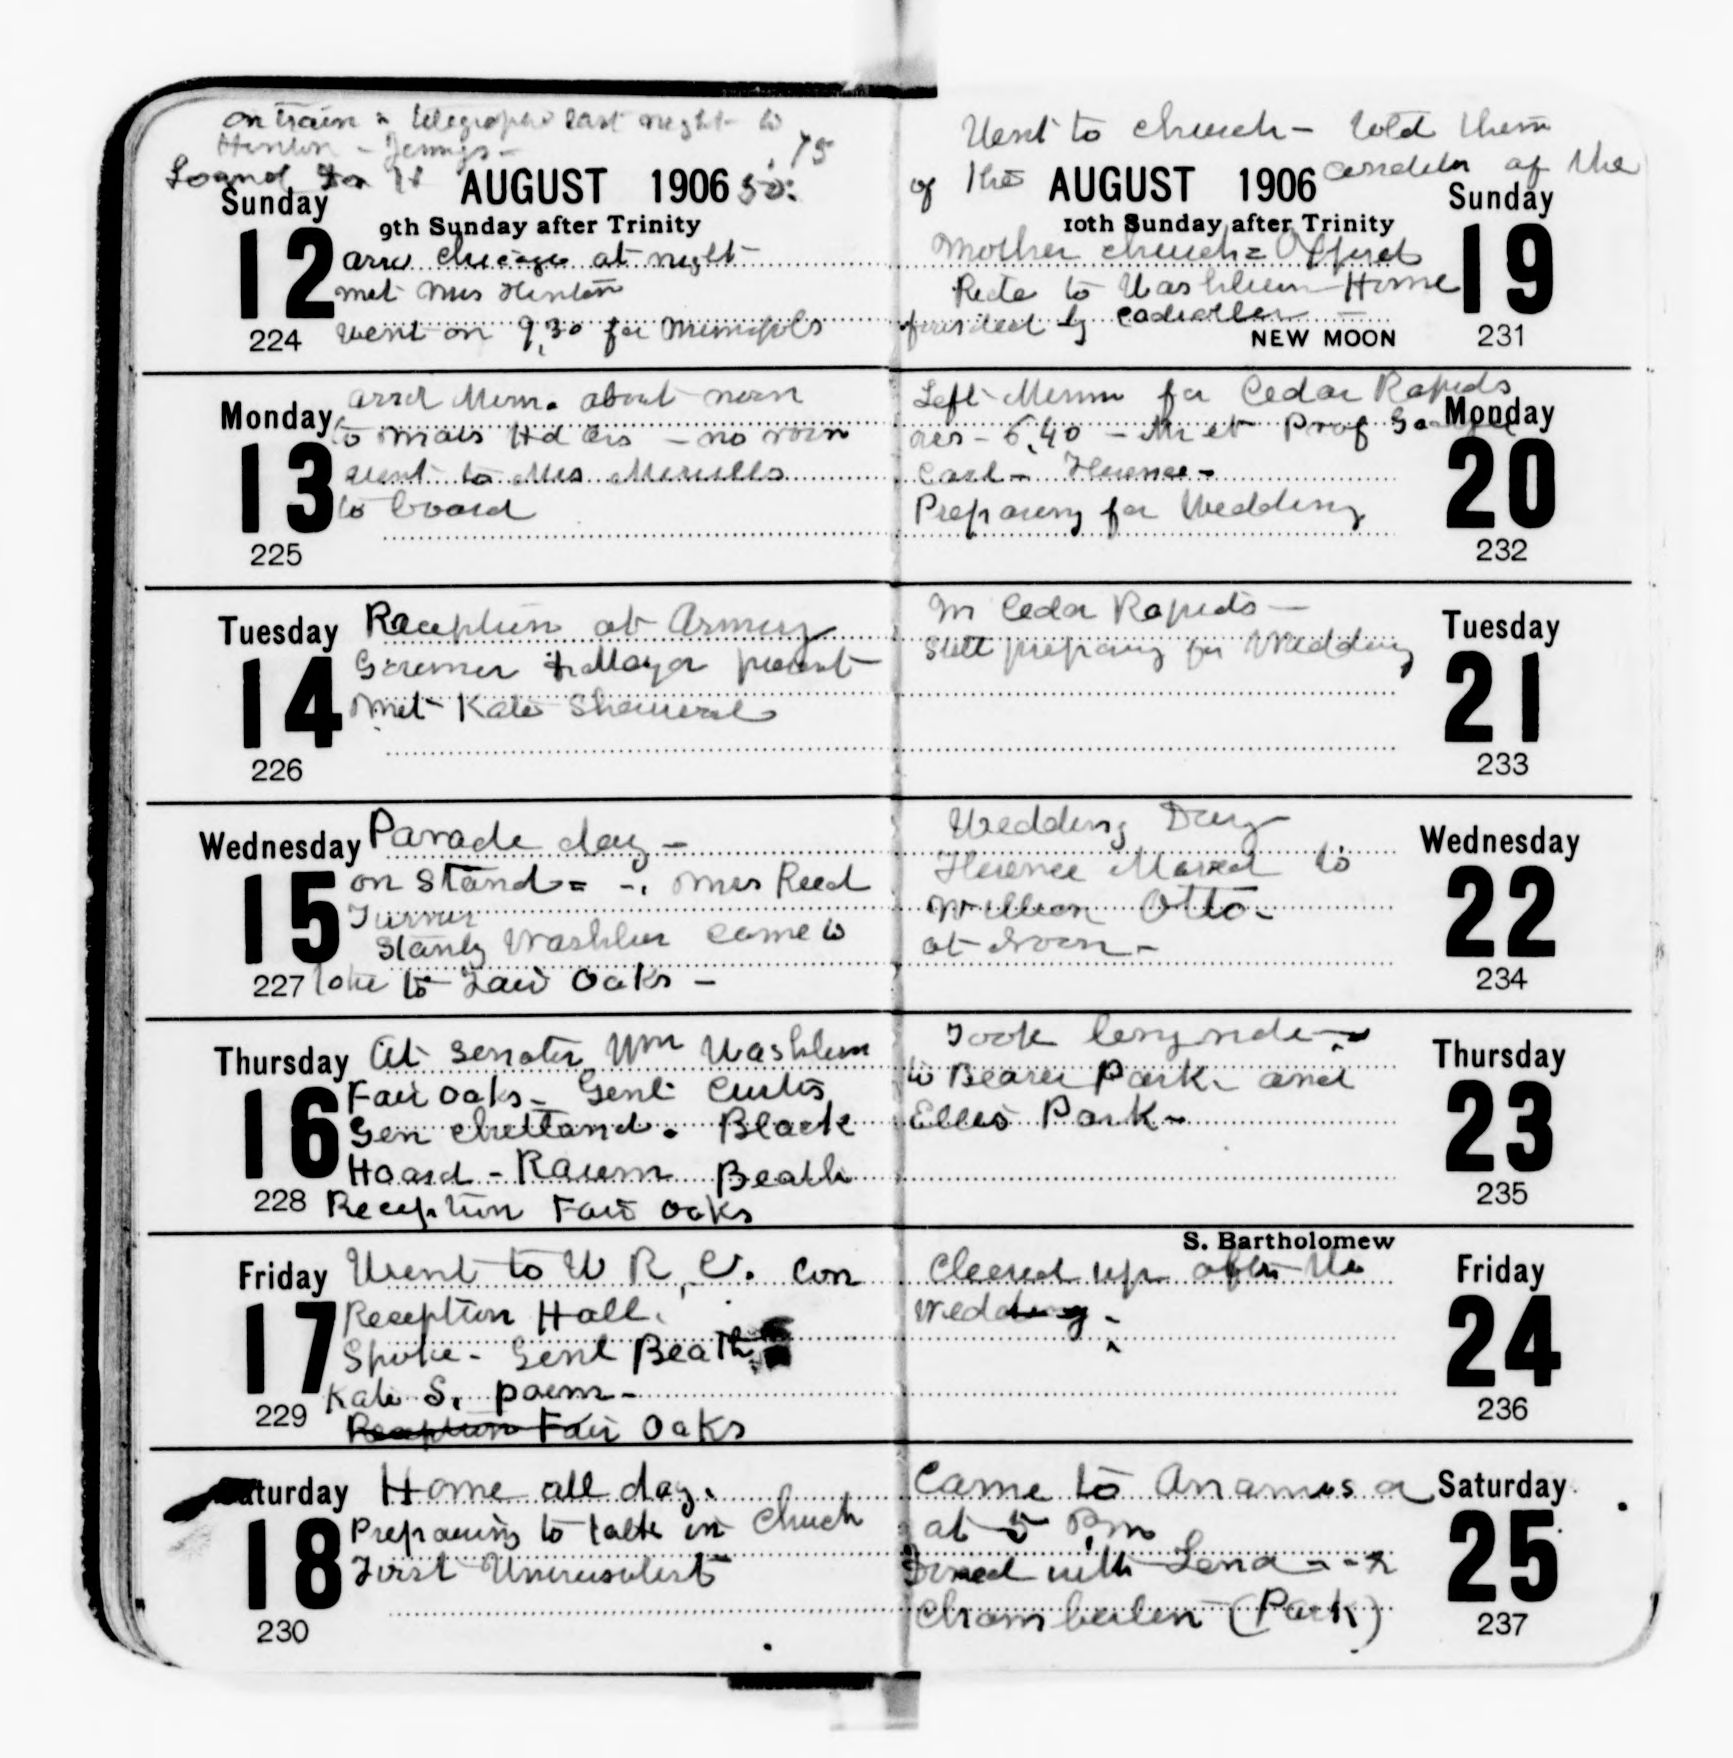 on train telegraphed last night to
Hinton - Jennys - .75
Loand 50
AUGUST 1906
Sunday
9th Sunday after Trinity
12
arrv Chicago at night
met Mrs Hinton
224
went on 9,30 for
Monday
arrd Minn. about noon
to Hd - no room
13
went to Mrs Merrills
to board
225
Tuesday
Reception at Armory
Governer & Mayor present
14
met Kate
226
Wednesday
Parade day -
on Stand = - Mrs Reed
15
Turner
Stanly Washburn came to
227
take to Fair Oaks -
Thursday
At Senator Wm Washburn
Fair Oaks - Genl Curtis
16
Gen . Black
Hoard - Raum Beath
228
Reception Fair Oaks
Friday
Went to W R C. con
Reception Hall.
17
Spoke - Genl Beath
Kate S. poem -
229
Reception Fair Oaks
Saturday
Home all day.
Preparing to talk in Church
18
First Universalist
230
Went to church - told them
of the condition of the
AUGUST 1906
Sunday
10th Sunday after Trinity
19
Mother church = Offired
to Washburn Home
by
NEW MOON
231
Left Minn for Cedar Rapids
Monday
6,40 - Met Prof
20
Carl - Florence -
Preparing for Wedding
232
In Cedar Rapids -
Tuesday
Still preparing for Wedding
21
233
Wedding Day
Wednesday
Florence Maried to
22
William Otto -
at noon -
234
Took long ride
Thursday
to Bearer Park - and
23
Ellis Park -
235
S. Bartholomew
Friday
Cleered up after the
wedding -
24
236
Came to Anamosa
Saturday
at 5 P.m
25
Dined with Lena
Chamberlin (Park)
237